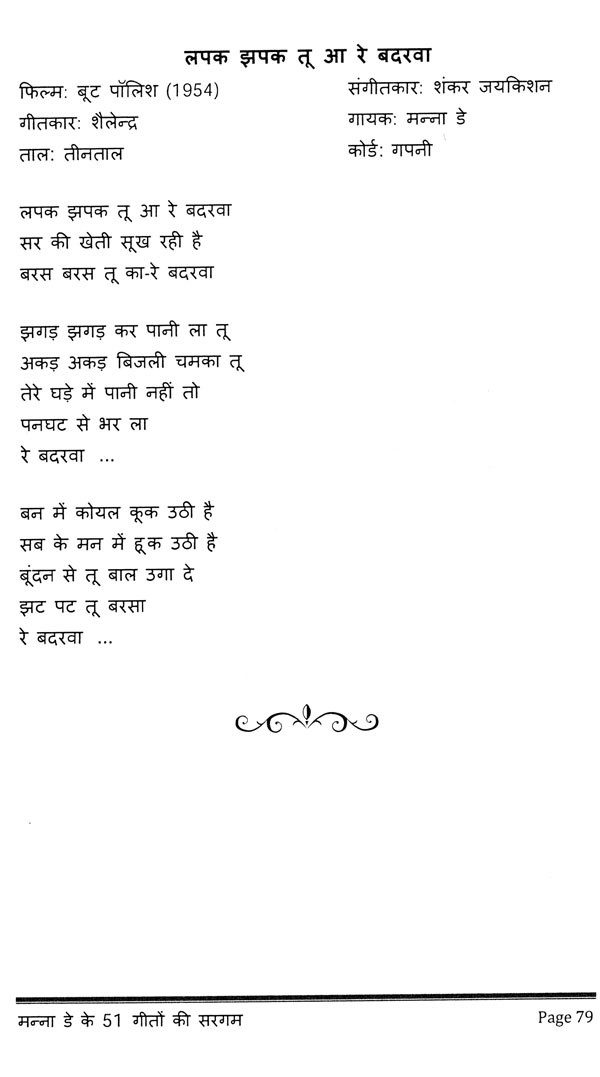 लपक झपक तू आ रे बदरवा
फिल्म: बूट पॉलिश (1954)
संगीतकार: शंकर जयकिशन
गीतकार: शैलेन्द्र
गायक: मन्ना डे
ताल: तीनताल
कोर्ड: गपनी
लपक झपक तू आ रे बदरवा
सर की खेती सूख रही है
बरस बरस तू का-रे बदरवा
झगड़ झगड़ कर पानी ला तू
अकड़ अकड़ बिजली चमका तू
तेरे घड़े में पानी नहीं तो
पनघट से भर ला
रे बदरवा ...
बन में कोयल कूक उठी है
सब के मन में हूक उठी है
बूंदन से तू बाल उगा दे
झट पट तू बरसा
रे बदरवा ...
मन्ना डे के 51 गीतों की सरगम
Page 79